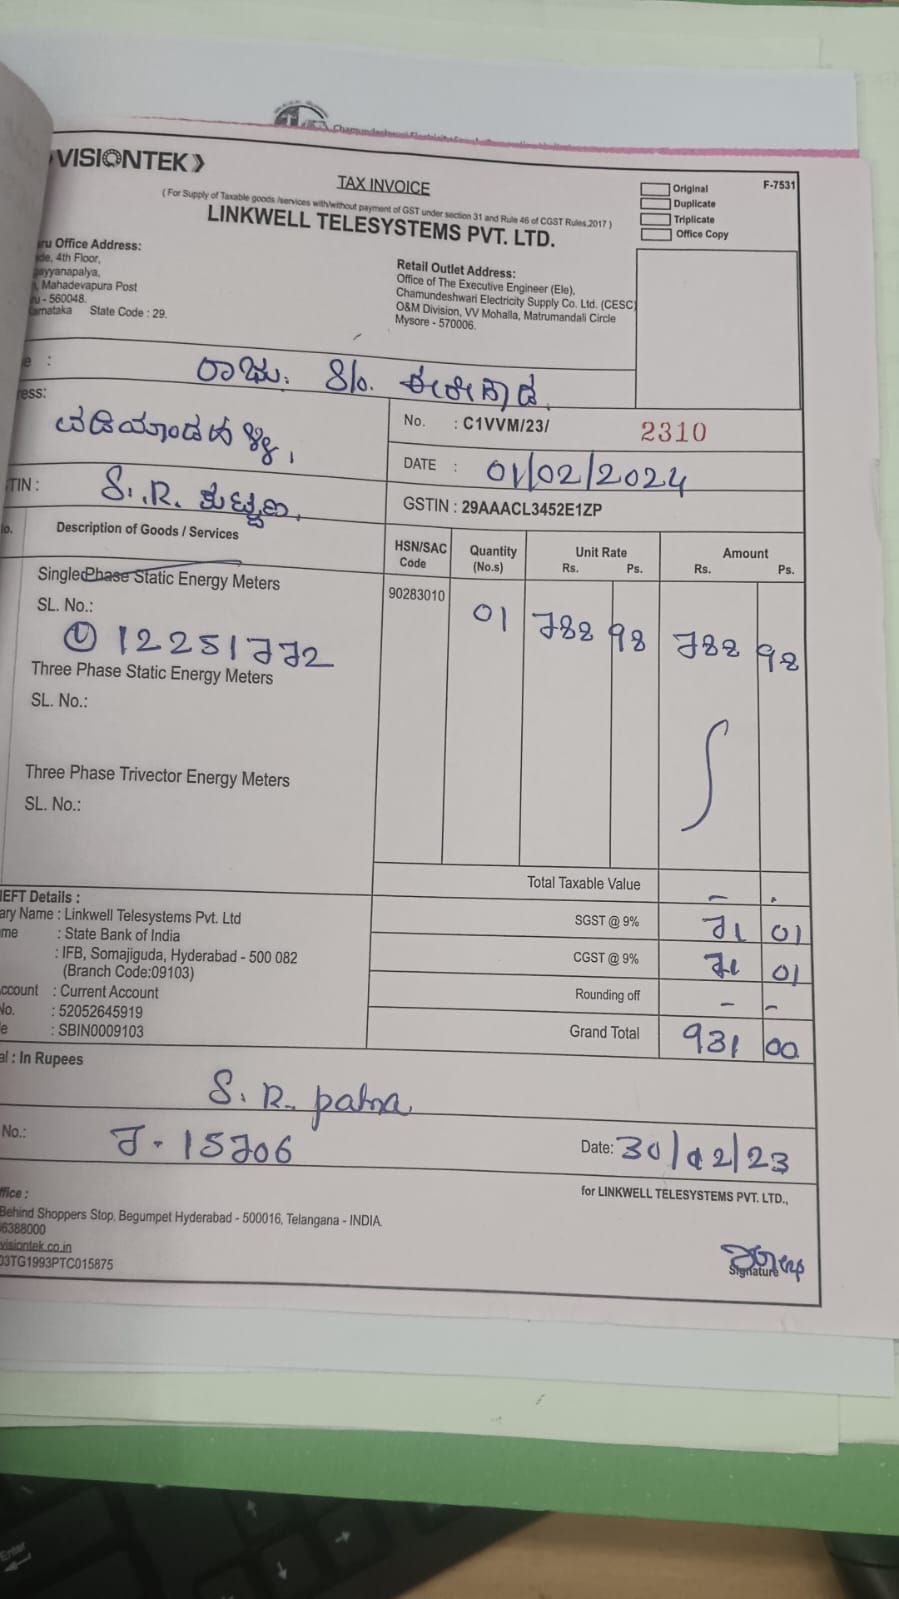 VISIONTEK
TAX INVOICE
Original
F-7531
Duplicate
Triplicate
Office Copy
( For Supply of Taxable goods /services with/without payment of GST under section 31 and Rule 46 of CGST Rules,2017 )
LINKWELL TELESYSTEMS PVT. LTD.
ru Office Address:
de, 4th Floor,
ayyanapalya,
, Mahadevapura Post
ru - 560048.
arnataka State Code : 29.
Retail Outlet Address:
Office of The Executive Engineer (Ele),
Chamundeshwari Electricity Supply Co. Ltd. (CESC)
O&M Division, VV Mohalla, Matrumandali Circle
Mysore - 570006.
e : ರಾಜು. S/o.
ress:
No. : C1VVM/23/ 2310
DATE : 01/02/2024
TIN : S.R.
GSTIN : 29AAACL3452E1ZP
lo. Description of Goods / Services HSN/SAC Code Quantity (No.s) Unit Rate Rs. Ps. Amount Rs. Ps.
Single Phase Static Energy Meters 90283010 01 788 98 788 98
SL. No.:
① 12251772
Three Phase Static Energy Meters
SL. No.:
Three Phase Trivector Energy Meters
SL. No.:
Total Taxable Value - .
SGST @ 9% 71 01
CGST @ 9% 71 01
Rounding off - -
Grand Total 931 00
IEFT Details :
ary Name : Linkwell Telesystems Pvt. Ltd
me : State Bank of India
: IFB, Somajiguda, Hyderabad - 500 082
(Branch Code:09103)
ccount : Current Account
No. : 52052645919
e : SBIN0009103
al : In Rupees
S. R. patna
No.: J - 15706
Date: 30/12/23
for LINKWELL TELESYSTEMS PVT. LTD.,
ffice :
Behind Shoppers Stop, Begumpet Hyderabad - 500016, Telangana - INDIA.
6388000
visiontek.co.in
03TG1993PTC015875
Signature